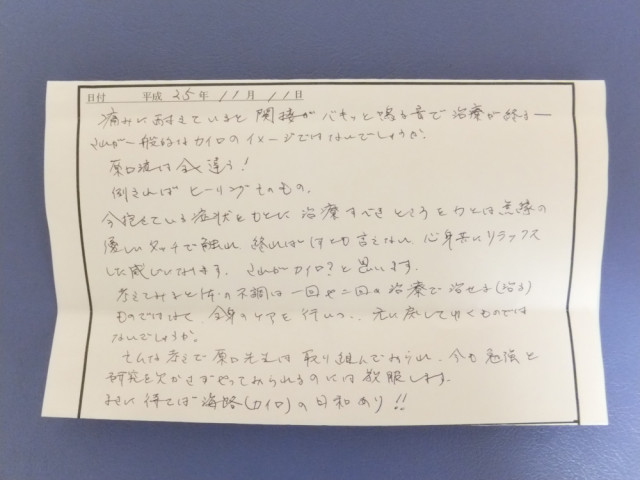 日付 平成 25年 11月 11日
痛みに耐えていると関接がバキッと鳴る音で治療が終る―
それが一般的なカイロのイメージではないでしょうか。
原口流は全く違う!
例えればヒーリングそのもの。
今抱えている症状をもとに治療すべきところを力とは無縁の
優しいタッチで触れ、終れば何とも言えない心身共にリラックス
した感じになります。これがカイロ?と思います。
考えてみると体の不調は一回や二回の治療で治せる(治る)
ものではなく、全身のケアを行いつつ、元に戻して行くものでは
ないでしょうか。
そんな考えで原口先生は取り組んでおられ、今も勉強と
研究を欠かさずやっておられるのには敬服します。
まさに待てば海路(カイロ)の日和あり!!